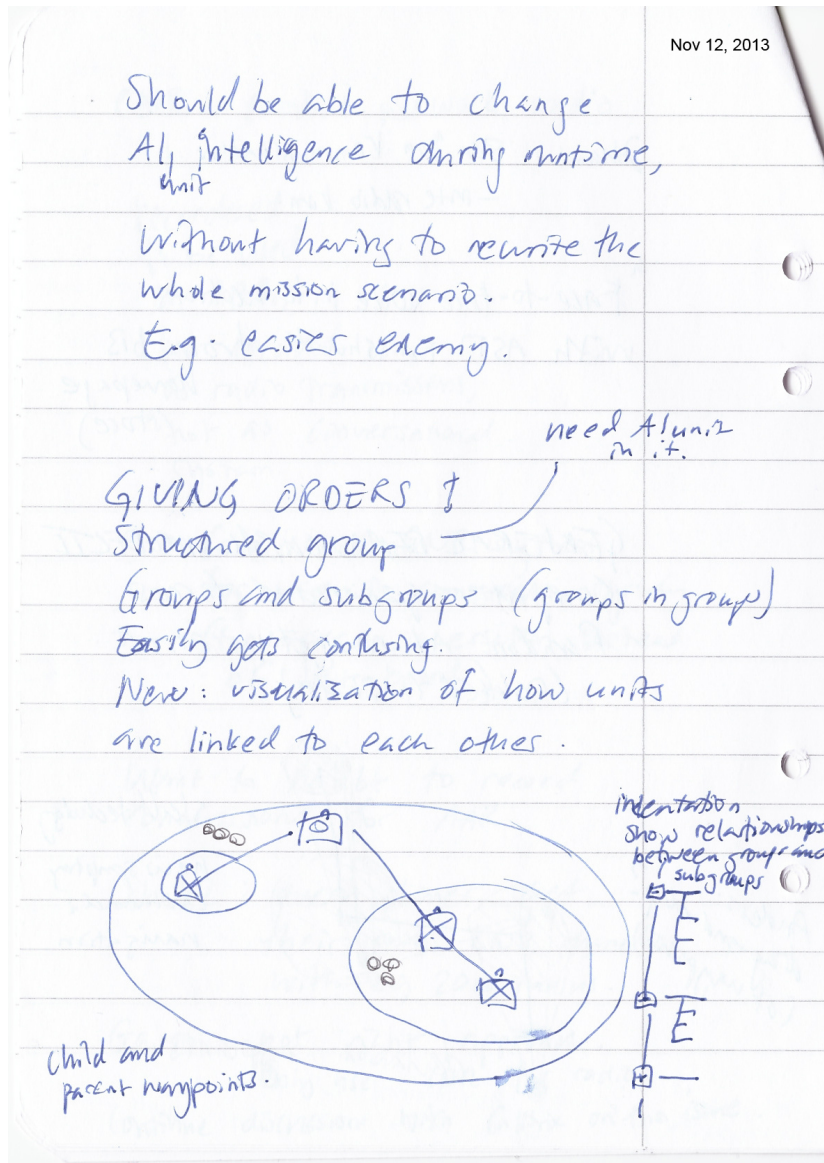 Nov 12, 2013
Should be able to change
AI, intelligence during runtime,
unit
without having to rewrite the
whole mission scenario.
E.g easies enemy.
need AI unit
in it.
GIVING ORDERS !
Structured group
Groups and subgroups (groups in groups)
Easily gets confusing.
New: visualization of how units
are linked to each other.
indentation
show relationships
between groups and
subgroups
Child and
parent waypoints.